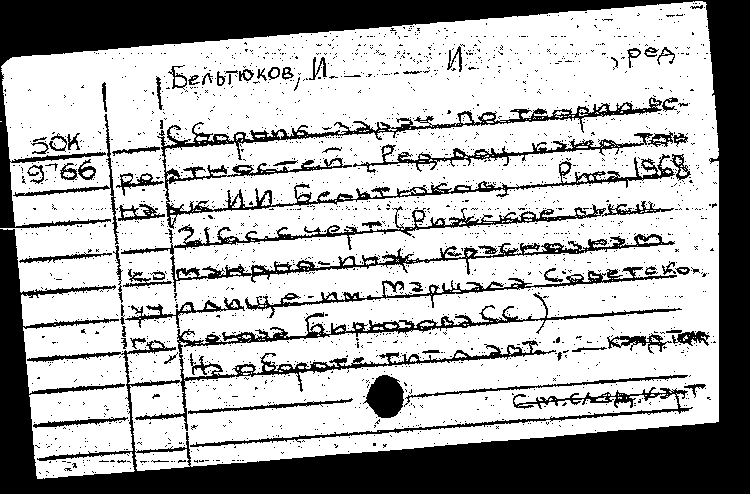 Бельтюков, И И , ред
50К Сборник задач по теории ве-
19766 роятностей. Ред. доц., канд. техн.
наук И.И. Бельтюков. Рига, 1968
216 с. с черт. (Рижское высш.
командно-инж. краснознам.
училище им. Маршала Советско-
го Союза Бирюзова С.С.)
На обороте тит. л. авт.: канд. техн
См. след. карт.